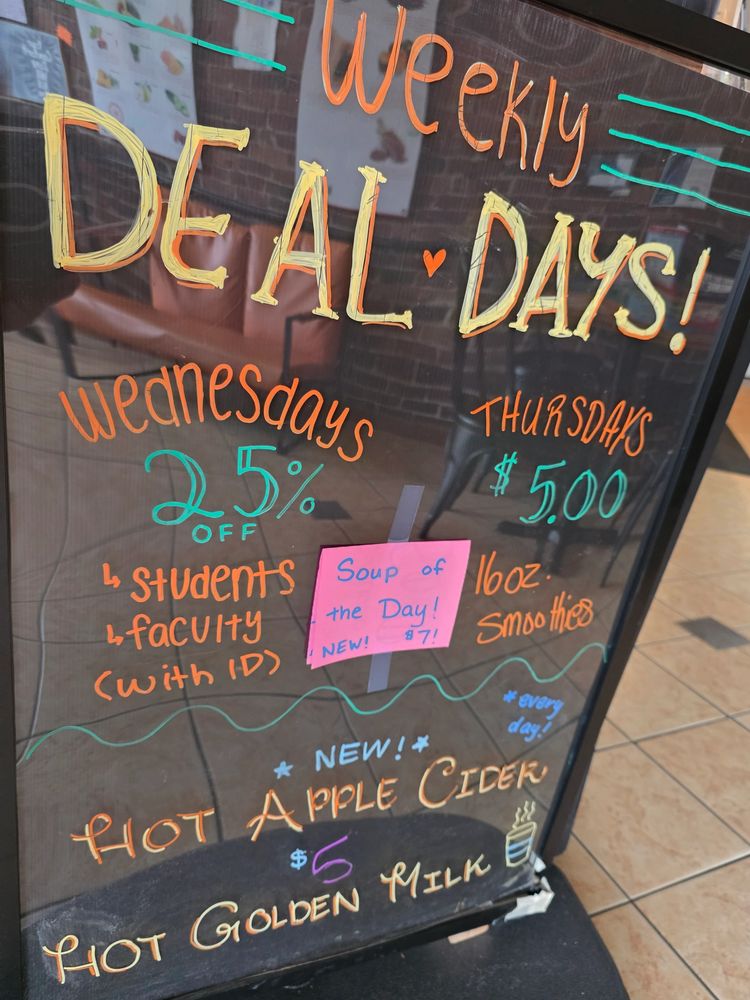 Weekly
DEAL DAYS!
Wednesdays
25%
OFF
↳ students
↳ faculty
(with ID)
THURSDAYS
$5.00
16oz.
Smoothies
Soup of
the Day!
NEW! $7!
*every
day!
* NEW! *
HOT APPLE CIDER
$5
HOT GOLDEN MILK